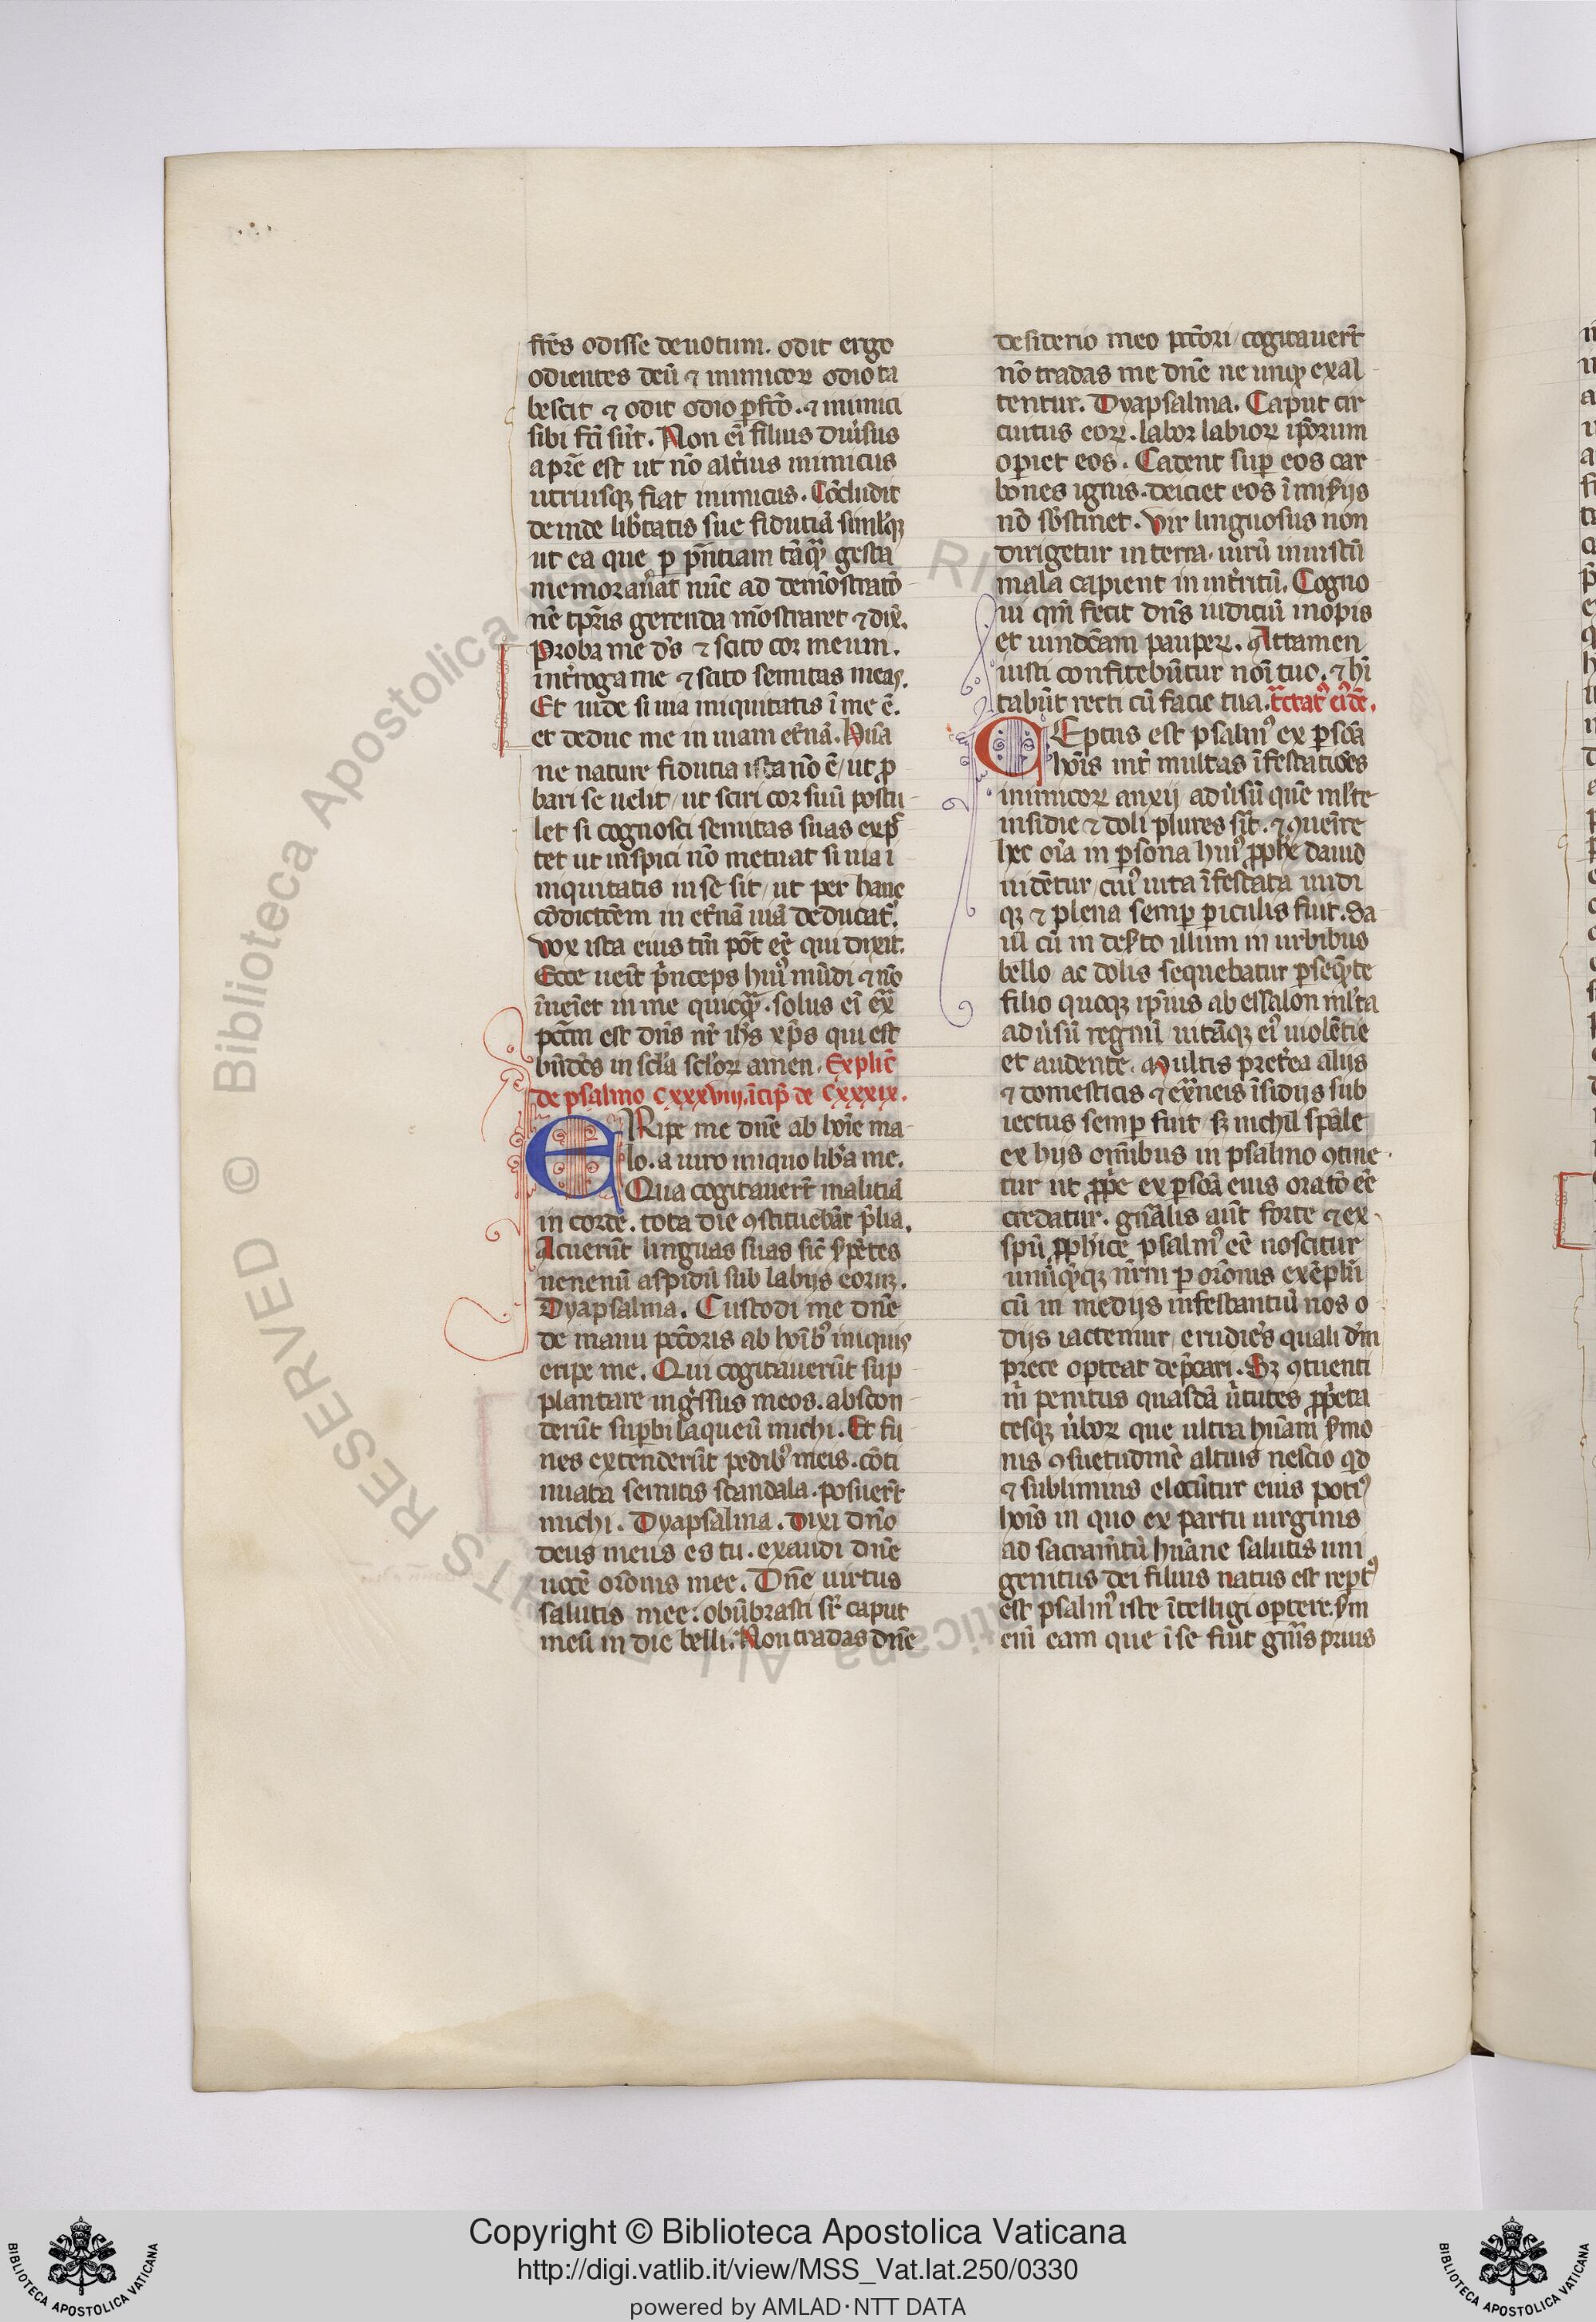 fr̄es odisse deuotum. odit ergo
odientes deū ⁊ inimicoꝝ odio ta
bescit ⁊ odit odio ꝑfc̄o. ⁊ inimici
sibi fc̄i sūt. Non eī filius diuisus
a pr̄e est ut nō alt̄ius inimicus
utriusqꝫ fiat inimicus. Cōcludit
deinde lib̄tatis sue fidutiā simlꝫqꝫ
ut ea que ꝑ p̄ntiam tāqͣꝫ gesta
memorau̾at nūc ad demōstratō
nē tp̄ris gerenda mōstraret ⁊ dix̄.
Proba me ds̄ ⁊ scito cor meum.
int̄roga me ⁊ scito semitas meas.
Et uide si uia iniquitatis ī me ē.
et deduc me in uiam et̄nā. Hūa
ne nature fidutia ista nō ē/ ut ꝓ
bari se uelit/ ut sciri cor suū postu
let si cognosci semitas suas expͨ
tet ut inspici nō metuat si uia i
niquitatis in se sit/ ut per hanc
cōdictōem in et̄nā uiā deducatᷣ.
vox ista eius tm̄ pōt eē qui dixit.
Ecce ueīt pͥnceps huiꝰ mūdi ⁊ nō
īueīet in me quicqͣꝫ. solus eī exͣ
pctm̄ est dn̄s nr̄ ih̄s xp̄s qui est
bn̄dc̄s in scl̄a scl̄oꝝ amen. Explic̄
de psalmo cxxxviij. īcip̄ de cxxxix.
ERipe me dn̄e ab hoīe ma
lo. a uiro iniquo lib̄a me.
Qua cogitauer̄t malitiā
in corde. tota die ꝯstituebāt p̄lia.
Acuerūt linguas suas sic̄ s̄pētes
uenenū aspidū sub labijs eorū.
Dyapsalma. Custodi me dn̄e
de manu pctōris ab hoībꝰ iniquis
eripe me. Qui cogitauerūt sup
plantare ingͤssus meos. abscon
derūt suꝑbi laqueū michi. Et fu
nes extenderūt pedibꝰ meis. cōti
nuata semitis scandala. posuer̄t
michi. Dyapsalma. Dixi dn̄o
deus meus es tu. exaudi dn̄e
uocē or̄onis mee. Dn̄e uirtus
salutis mee. obūbrasti sr̄ caput
meū in die belli. Non tradas dn̄e
desiderio meo pctōri/ cogitauer̄t
nō tradas me dn̄e ne unqͣꝫ exal
tentur. Dyapsalma. Caput cir
cuitus eoꝝ. labor labioꝝ ip̄orum
oꝑiet eos. Cadent suꝑ eos car
bones ignis. deiciet eos ī mis̄ijs
nō sb̄stinet. Vir linguosus non
dirigetur in terra. uirū iniustū
mala capient in int̄ritū. Cogno
ui qm̄ fecit dn̄s iudiciū inopis
et uindc̄am pauperꝝ. Attamen
iusti confitebūtur noī tuo. ⁊ hī
tabūt recti cū facie tua. Tͣctatꝰ eiꝰdē.
CEptus est psalmꝰ ex ꝑsōa
hoīs int̄ multas īfestatiōēs
inimicoꝝ anxij adūsū quē ml̄te
insidie ⁊ doli plures sīt. ⁊ ꝯueīre
hec oīa in ꝑsona huiꝰ ꝓphē dauid
uidētur/ cuiꝰ uita īfestata undi
qꝫ ⁊ plena semꝑ ꝑiculis fuit. Sa
ul̄ cū in des̄to illum in urbibus
bello ac dolis sequebatur ꝑseqͣnte
filio quoqꝫ ip̄ius absalon ml̄ta
adūsū regnū uitāqꝫ eiꝰ uiolētie
et audente. Multis pret̄ea alijs
⁊ domesticis ⁊ ext̄neis īsidijs sub
iectus semꝑ fuit/ sꝫ nichil sp̄ale
ex hijs om̄ibus in psalmo ꝯtine
tur ut ꝓp̄e ex ꝑsōa euis orato eē
credatur. gn̄alis aūt forte ⁊ ex
spū ꝓphīce psalmꝰ eē noscitur
unūqͣꝫqꝫ nr̄m ꝑ or̄onis exēplū
cū in medijs infestantiū nos o
dijs iactemur/ erudiēs quali dm̄
prece oꝑteat dep̄cari. Sꝫ ꝯtuenti
m̄ penitus quasdā u̾tutes ꝓp̄eta
tesqꝫ u̾boꝝ que ultra hūam s̄mo
nis ꝯsuetudinē altius nescio qd̄
⁊ sublimius elocūtur euis potiꝰ
hoīs in quo ex partu uirginis
ad sacram̄tū hūane salutis uni
genitus dei filius natus est reptꝰ
est psalmꝰ iste ītelligi oꝑtere. s̄m
eni eam que ī se fiūt gn̄is prius
Copyright © Biblioteca Apostolica Vaticana
http://digi.vatlib.it/view/MSS_Vat.lat.250/0330
powered by AMLAD·NTT DATA